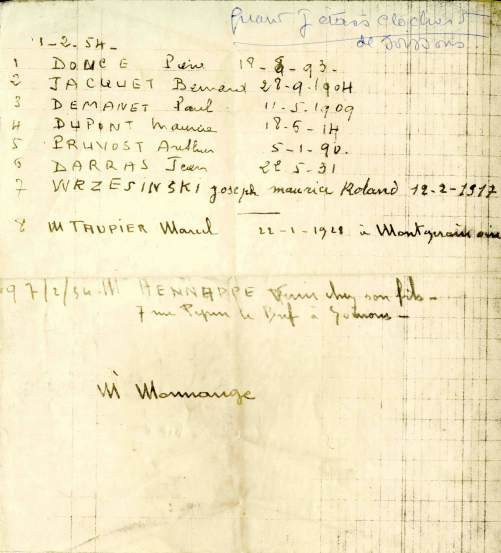 quand j'étais clochard
de Soissons
1-2-54-
1 DONCE Pierre 18-8-93.
2 JACQUET Bernard 28-9.1904
3 DEMANET Paul 11-5.1909
4 DUPONT Maurice 18-5-14
5 PRUVOST Arthur 5-1-90.
6 DARRAS Jean 22.5-31
7 WRZESINSKI joseph maurice Roland 12-2-1917
8 M TAUPIER Marcel 22-1-1928 à Montgerain oise
9 7/2/54. M HENNAPPE chez son fils-
7 rue Pepin le Bref à Soissons-
M Monnange